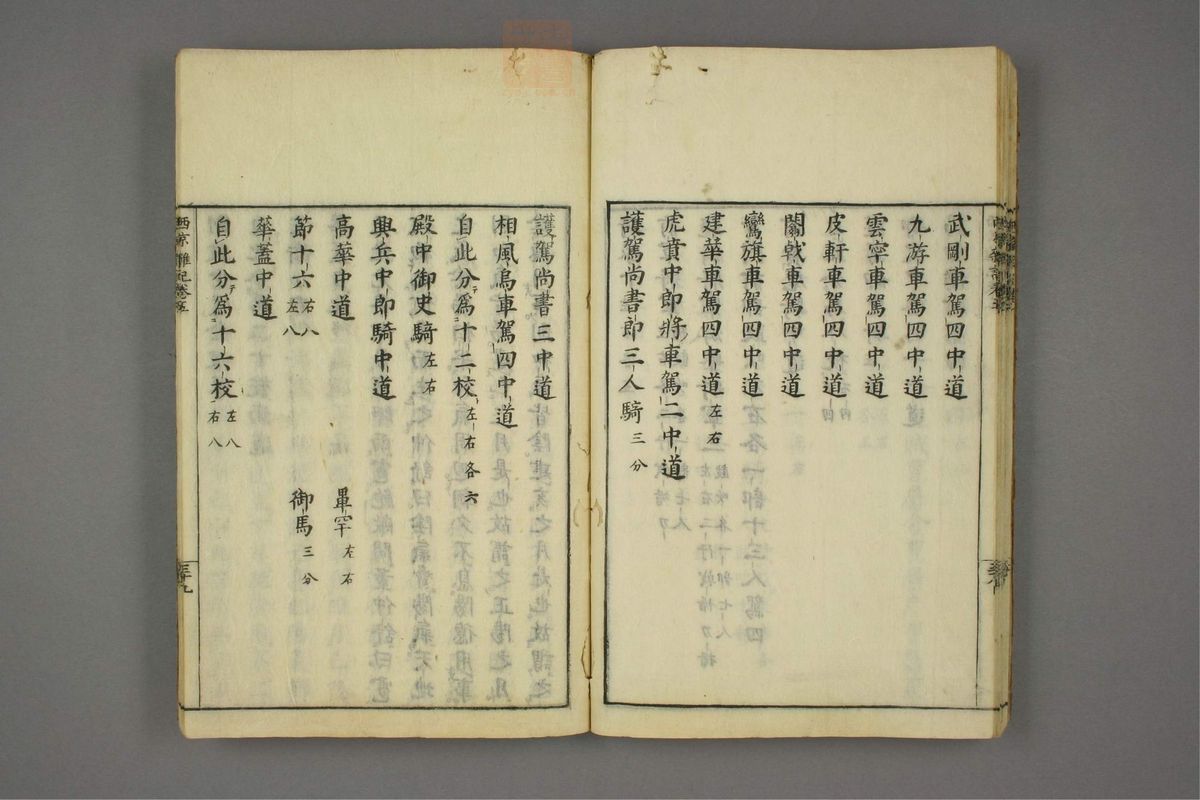 武剛車駕四中道
九游車駕四中道
雲罕車駕四中道
皮軒車駕四中道
闟戟車駕四中道
鸞旗車駕四中道
建華車駕四中道左右
虎賁中郎將車駕二中道
護駕尚書郎三人騎三分
護駕尚書三中道
相風烏車駕四中道
自此分爲十二校左右各六
殿中御史騎左右
興兵中郎騎中道
高華中道 罼罕左右
節十六右八左八 御馬三分
華蓋中道
自此分爲十六校左八右八
西京雜記卷五
三十九